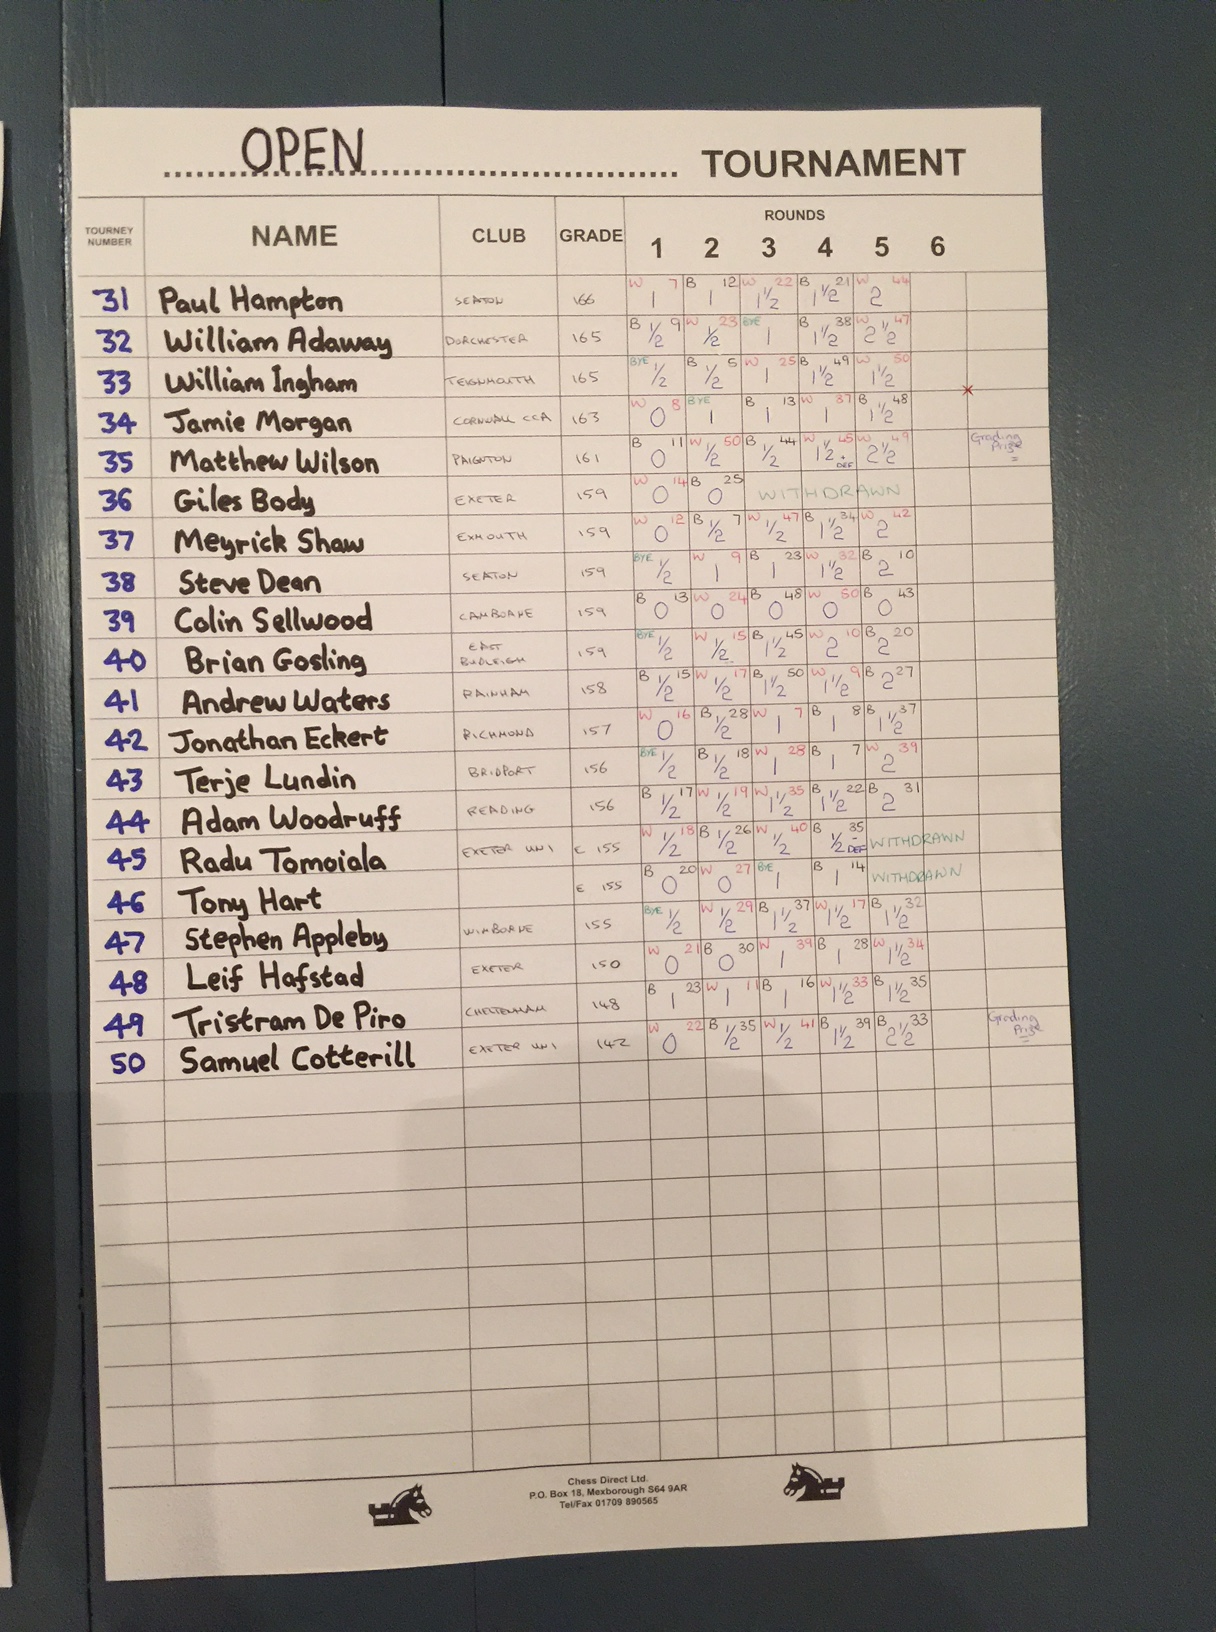 OPEN TOURNAMENT
TOURNEY NUMBER NAME CLUB GRADE ROUNDS
1 2 3 4 5 6
31 Paul Hampton SEATON 166 W 7 1 B 12 1 W 22 1½ B 21 1½ W 44 2
32 William Adaway DORCHESTER 165 B 9 ½ W 23 ½ BYE 1 B 38 1½ W 47 2½
33 William Ingham TEIGNMOUTH 165 BYE ½ B 5 ½ W 25 1 B 49 1½ W 50 1½
34 Jamie Morgan CORNWALL CCA 163 W 8 0 BYE 1 B 13 1 W 37 1 B 48 1½
35 Matthew Wilson PAIGNTON 161 B 11 0 W 50 ½ B 44 ½ W 45 1½ + DEF W 49 2½ Grading Prize
36 Giles Body EXETER 159 W 14 0 B 25 0 WITHDRAWN
37 Meyrick Shaw EXMOUTH 159 W 12 0 B 7 ½ W 47 ½ B 34 1½ W 42 2
38 Steve Dean SEATON 159 BYE ½ W 9 1 B 23 1 W 32 1½ B 10 2
39 Colin Sellwood CAMBORNE 159 B 13 0 W 24 0 B 48 0 W 50 0 B 43 0
40 Brian Gosling EAST BUDLEIGH 159 BYE ½ W 15 ½ B 45 1½ W 10 2 B 20 2
41 Andrew Waters RAINHAM 158 B 15 ½ W 17 ½ B 50 1½ W 9 1½ B 27 2
42 Jonathan Eckert RICHMOND 157 W 16 0 B 28 ½ W 7 1 B 8 1 B 37 1½
43 Terje Lundin BRIDPORT 156 BYE ½ B 18 ½ W 28 1 B 7 1 W 39 2
44 Adam Woodruff READING 156 B 17 ½ W 19 ½ W 35 1½ B 22 1½ B 31 2
45 Radu Tomoiala EXETER UNI E 155 W 18 ½ B 26 ½ W 40 ½ B 35 ½ - DEF WITHDRAWN
46 Tony Hart E 155 B 20 0 W 27 0 BYE 1 B 14 1 WITHDRAWN
47 Stephen Appleby WIMBORNE 155 BYE ½ W 29 ½ B 37 1½ W 17 1½ B 32 1½
48 Leif Hafstad EXETER 150 W 21 0 B 30 0 W 39 1 B 28 1 W 34 1½
49 Tristram De Piro CHELTENHAM 148 B 23 1 W 11 1 B 16 1 W 33 1½ B 35 1½
50 Samuel Cotterill EXETER UNI 142 W 22 0 B 35 ½ W 41 ½ B 39 1½ B 33 2½ Grading Prize
Chess Direct Ltd.
P.O. Box 18, Mexborough S64 9AR
Tel/Fax 01709 890565